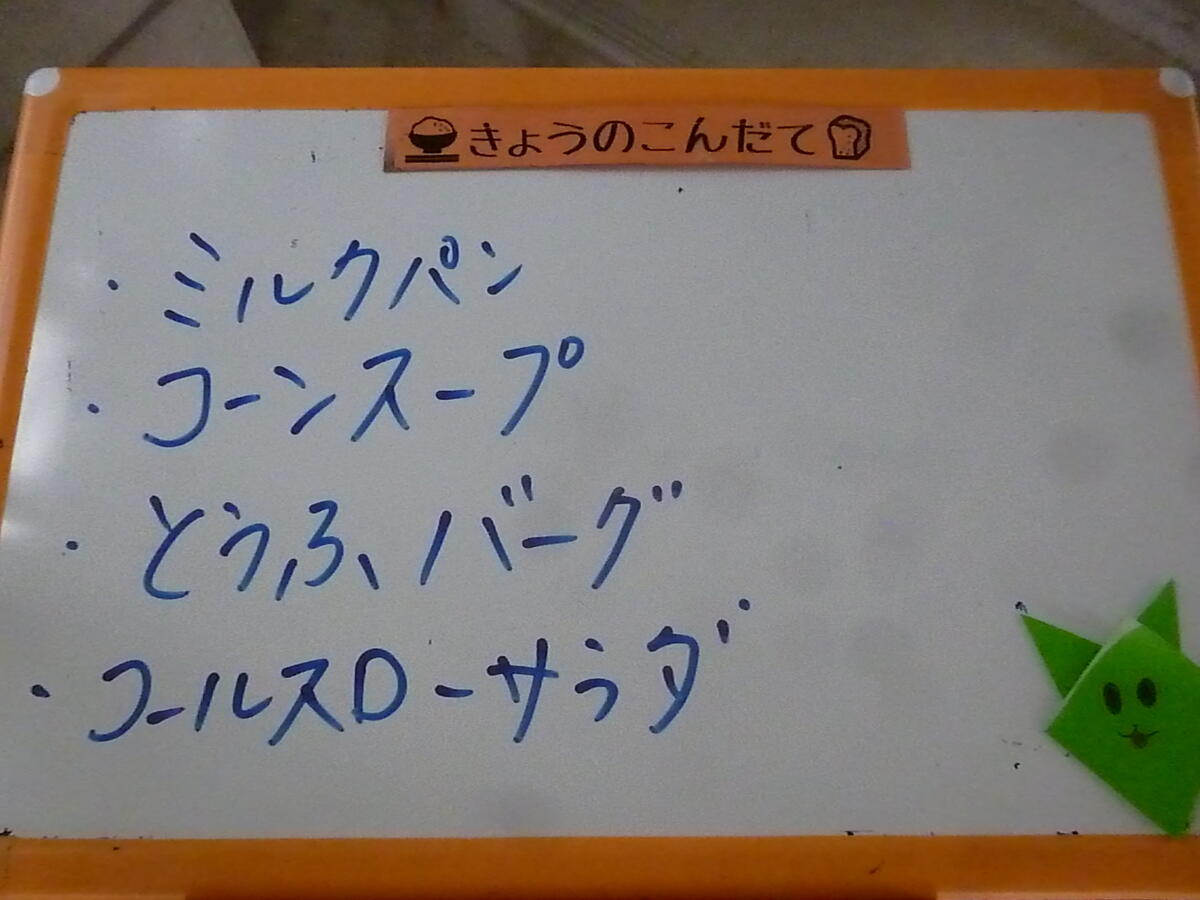 きょうのこんだて
・ミルクパン
・コーンスープ
・とうふバーグ
・コールスローサラダ